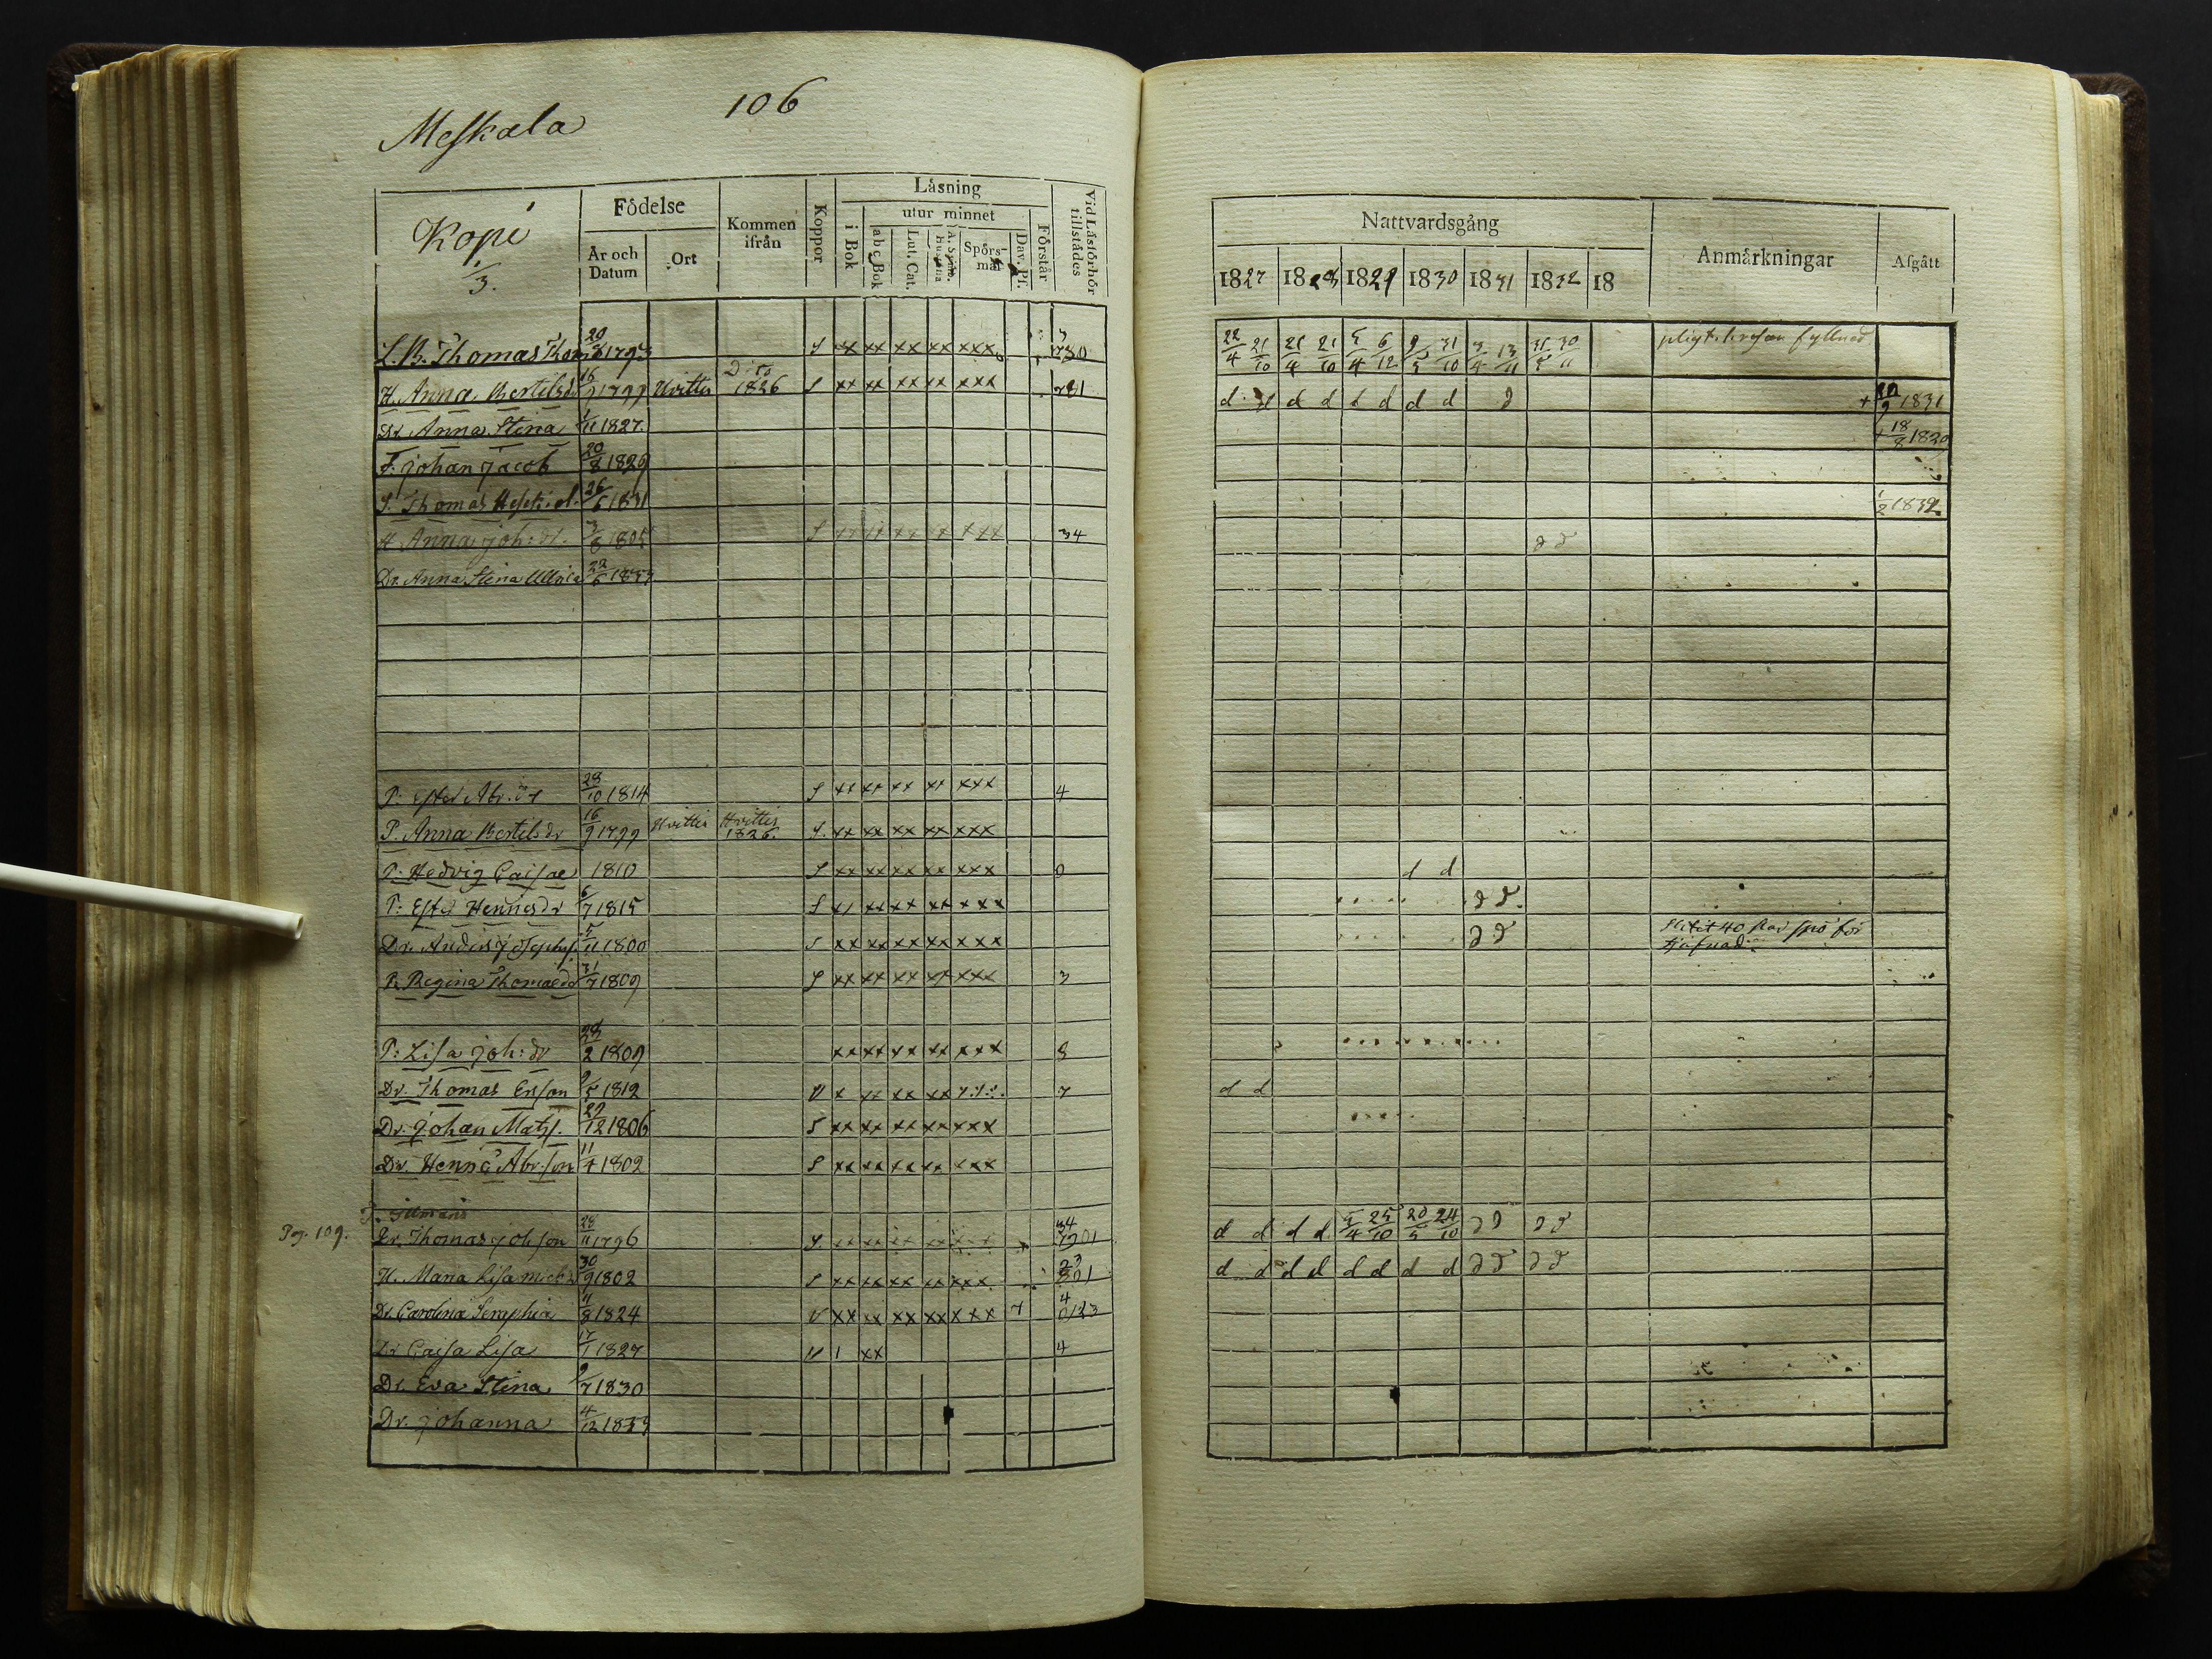 Meskala
106
Kopi
1/3.
Födelse
År och Datum
Ort
Kommen ifrån
Koppor
Låsning
i Bok
utur minnet
a b c Bok
Lut. Cat.
Spörs-mål
Dav. Ps.
Förstår
Vid Låsförhör tillstädes
Nattvardsgång
1827 1828 1829 1830 1831 1832 18
Anmårkningar
Afgått
L.B. Thomas Thom 20/8 1793 S xx xx xx xx xxx 730 22/4 21/10 21/4 21/10 5/4 6/12 9/5 31/10 3/4 13/11 31/5 30/11 fyllned
H. Anna Bertilsdr 16/9 1799 Hvittis Dito 1826 S xx xx xx xx xxx 781 d d d d d d d + 1831
Dr Anna Stina 1/11 1827. + 18/8 1830
S: Johan Jacob 20/8 1829
S. Thomas 26/6 1831 1/2 1832
H Anna Joh: dr. 3/8 1805 S xx xx xx xx xxx 34 d d
Dr. Anna Stina Ulrica 22/6 1833
P: Ester Abr. dr 28/10 1814 S xx xx xx xx xxx 4
P. Anna Bertilsdr 16/9 1799 Hvittis Hvittis 1826. S. xx xx xx xx xxx
P: Hedvig Caisa 1810 S xx xx xx xx xxx 0 d d
P: Ester Hennesdr 6/7 1815 S xx xx xx xx xxx d d
Dr. Anders Josephs. 5/11 1800 S xx xx xx xx xxx d d Slitit 40 par spö för tjufnad
P. Regina Thomasdr 31/7 1809 S xx xx xx xx xxx 3
P: Lisa Joh: dr 28/2 1809 xx xx xx xx xxx 8
Dr. Thomas Erson 9/5 1812 V x xx xx xx 7 d d
Dr. Johan Mats. 29/12 1806 S xx xx xx xx xxx
Dr. Henric Abr:son 11/4 1802 S xx xx xx xx xxx
Pag. 109. Dr. Thomas Johson 28/11 1796 S. xx xx xx xx xxx 34 d d d d 5/4 25/10 20/5 24/10 d d d d
H. Maria Lisa 30/9 1802 S xx xx xx xx xxx 23 801 d d d d d d d d d d d d
Dr. Carolina Seraphia 11/8 1824 V xx xx xx xx xxx 4 0123
Dr Caisa Lisa 17/1 1827 V 1 xx 4
Dr. Eva Stina 9/7 1830
Dr. Johanna 4/12 1833